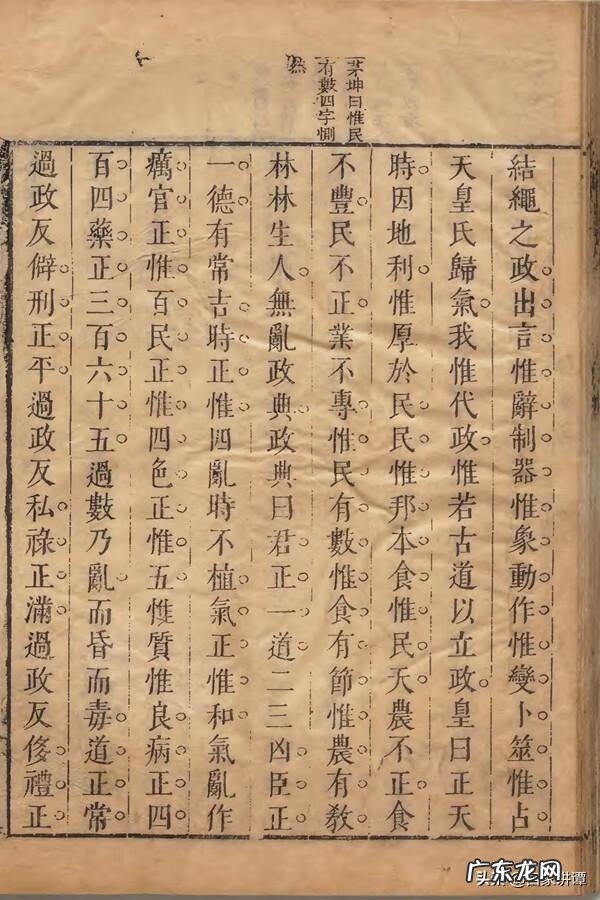 茅坤曰惟民
有數四字惻
然
結繩之政出言惟辭制器惟象動作惟變卜筮惟占
天皇氏歸氣我惟代政惟若古道以立政皇曰正天
時因地利惟厚於民民惟邦本食惟民天農不正食
不豐民不正業不專惟民有數惟食有節惟農有教
林林生人無亂政典政典曰君正一道二三凶臣正
一德有常吉時正惟四亂時不植氣正惟和氣亂作
癘官正惟百民正惟四色正惟五惟質惟良病正四
百四藥正三百六十五過數乃亂而昏而毒道正常
過政反僻刑正平過政反私祿正滿過政反侈禮正
广东龙网